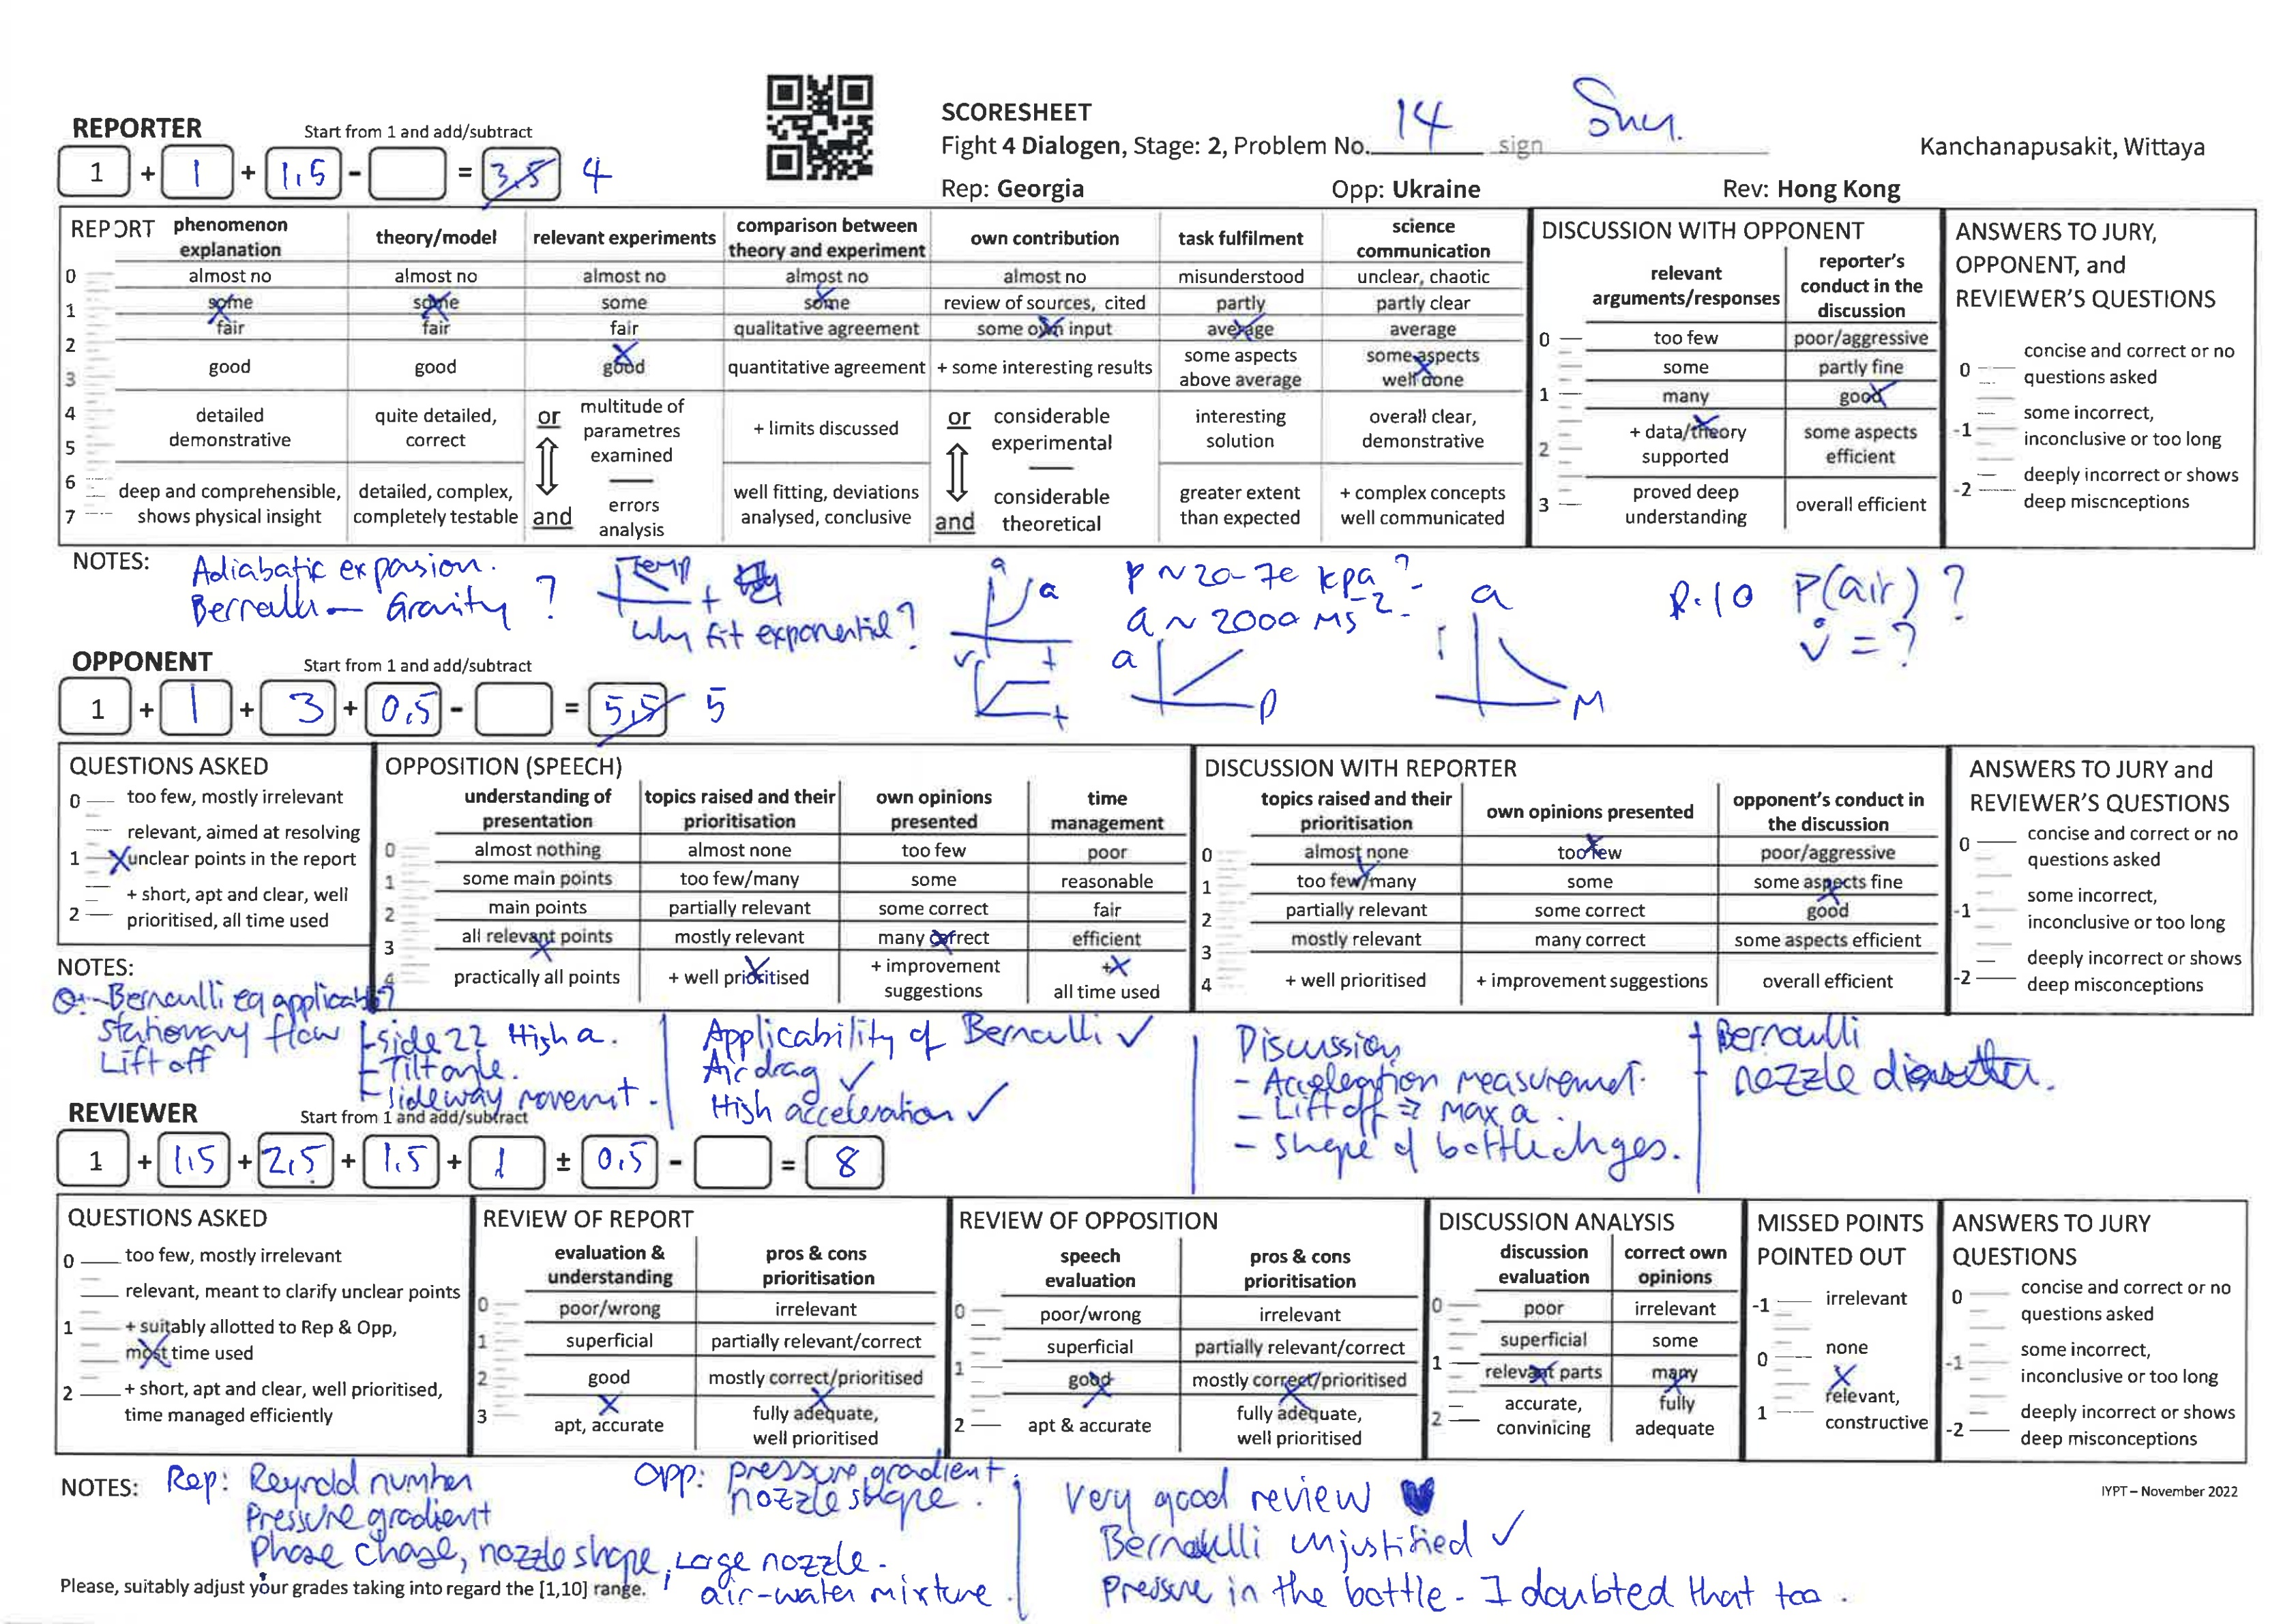 SCORESHEET
Fight 4 Dialogen, Stage: 2, Problem No. 14 sign
Kanchanapusakit, Wittaya
Rep: Georgia Opp: Ukraine Rev: Hong Kong
REPORTER Start from 1 and add/subtract
1 + 1 + 1,5 - = 3,5 4
REPORT
phenomenon explanation
theory/model
relevant experiments
comparison between theory and experiment
own contribution
task fulfilment
science communication
0 almost no almost no almost no almost no almost no misunderstood unclear, chaotic
1 some some some some review of sources, cited partly partly clear
fair fair fair qualitative agreement some own input average average
2
3 good good good quantitative agreement + some interesting results some aspects above average some aspects well done
4
5 detailed demonstrative quite detailed, correct or multitude of parametres examined + limits discussed or considerable experimental interesting solution overall clear, demonstrative
6
7 deep and comprehensible, shows physical insight detailed, complex, completely testable and errors analysis well fitting, deviations analysed, conclusive and considerable theoretical greater extent than expected + complex concepts well communicated
DISCUSSION WITH OPPONENT
relevant arguments/responses
reporter's conduct in the discussion
0 too few poor/aggressive
some partly fine
1 many good
2 + data/theory supported some aspects efficient
3 proved deep understanding overall efficient
ANSWERS TO JURY, OPPONENT, and REVIEWER'S QUESTIONS
0 concise and correct or no questions asked
-1 some incorrect, inconclusive or too long
-2 deeply incorrect or shows deep miscnceptions
NOTES: Adiabatic expasion.
Bernoulli — Gravity ?
Temp t
Why fit exponential?
a a
v t
p ~ 20-70 kpa ?
a ~ 2000 ms⁻²
a P
a M
P(air) ?
OPPONENT Start from 1 and add/subtract
1 + 1 + 3 + 0,5 - = 5,5 5
QUESTIONS ASKED
0 too few, mostly irrelevant
relevant, aimed at resolving
1 unclear points in the report
+ short, apt and clear, well
2 prioritised, all time used
OPPOSITION (SPEECH)
understanding of presentation
topics raised and their prioritisation
own opinions presented
time management
0 almost nothing almost none too few poor
1 some main points too few/many some reasonable
2 main points partially relevant some correct fair
3 all relevant points mostly relevant many correct efficient
4 practically all points + well prioritised + improvement suggestions + all time used
DISCUSSION WITH REPORTER
topics raised and their prioritisation
own opinions presented
opponent's conduct in the discussion
0 almost none too few poor/aggressive
1 too few/many some some aspects fine
2 partially relevant some correct good
3 mostly relevant many correct some aspects efficient
4 + well prioritised + improvement suggestions overall efficient
ANSWERS TO JURY and REVIEWER'S QUESTIONS
0 concise and correct or no questions asked
-1 some incorrect, inconclusive or too long
-2 deeply incorrect or shows deep misconceptions
NOTES:
Q:-Bernoulli eq applicable?
stationary flow
Lift off
- side 22 High a.
- Tilt angle.
- sideway movemt.
Applicability of Bernoulli ✓
Air drag ✓
High acceleration ✓
Discussion
- Acceleration measuremet.
- Lift off ⇒ max a.
- Shape of bottle chges.
+ Bernoulli
+ nozzle
REVIEWER Start from 1 and add/subtract
1 + 1,5 + 2,5 + 1,5 + 1 ± 0,5 - = 8
QUESTIONS ASKED
0 too few, mostly irrelevant
relevant, meant to clarify unclear points
1 + suitably allotted to Rep & Opp,
most time used
2 + short, apt and clear, well prioritised,
time managed efficiently
REVIEW OF REPORT
evaluation & understanding
pros & cons prioritisation
0 poor/wrong irrelevant
1 superficial partially relevant/correct
2 good mostly correct/prioritised
3 apt, accurate fully adequate, well prioritised
REVIEW OF OPPOSITION
speech evaluation
pros & cons prioritisation
0 poor/wrong irrelevant
superficial partially relevant/correct
1 good mostly correct/prioritised
2 apt & accurate fully adequate, well prioritised
DISCUSSION ANALYSIS
discussion evaluation
correct own opinions
0 poor irrelevant
superficial some
1 relevant parts many
2 accurate, convinicing fully adequate
MISSED POINTS POINTED OUT
-1 irrelevant
0 none
1 relevant, constructive
ANSWERS TO JURY QUESTIONS
0 concise and correct or no questions asked
-1 some incorrect, inconclusive or too long
-2 deeply incorrect or shows deep misconceptions
NOTES: Rep: Reynold number
Pressure gradient
Phase chage, nozzle shape, Large nozzle.
air-water mixture.
Opp: pressure gradient.
nozzle shape.
Very good review ♥
Bernoulli unjustified ✓
Pressure in the bottle - I doubted that too.
IYPT – November 2022
Please, suitably adjust your grades taking into regard the [1,10] range.